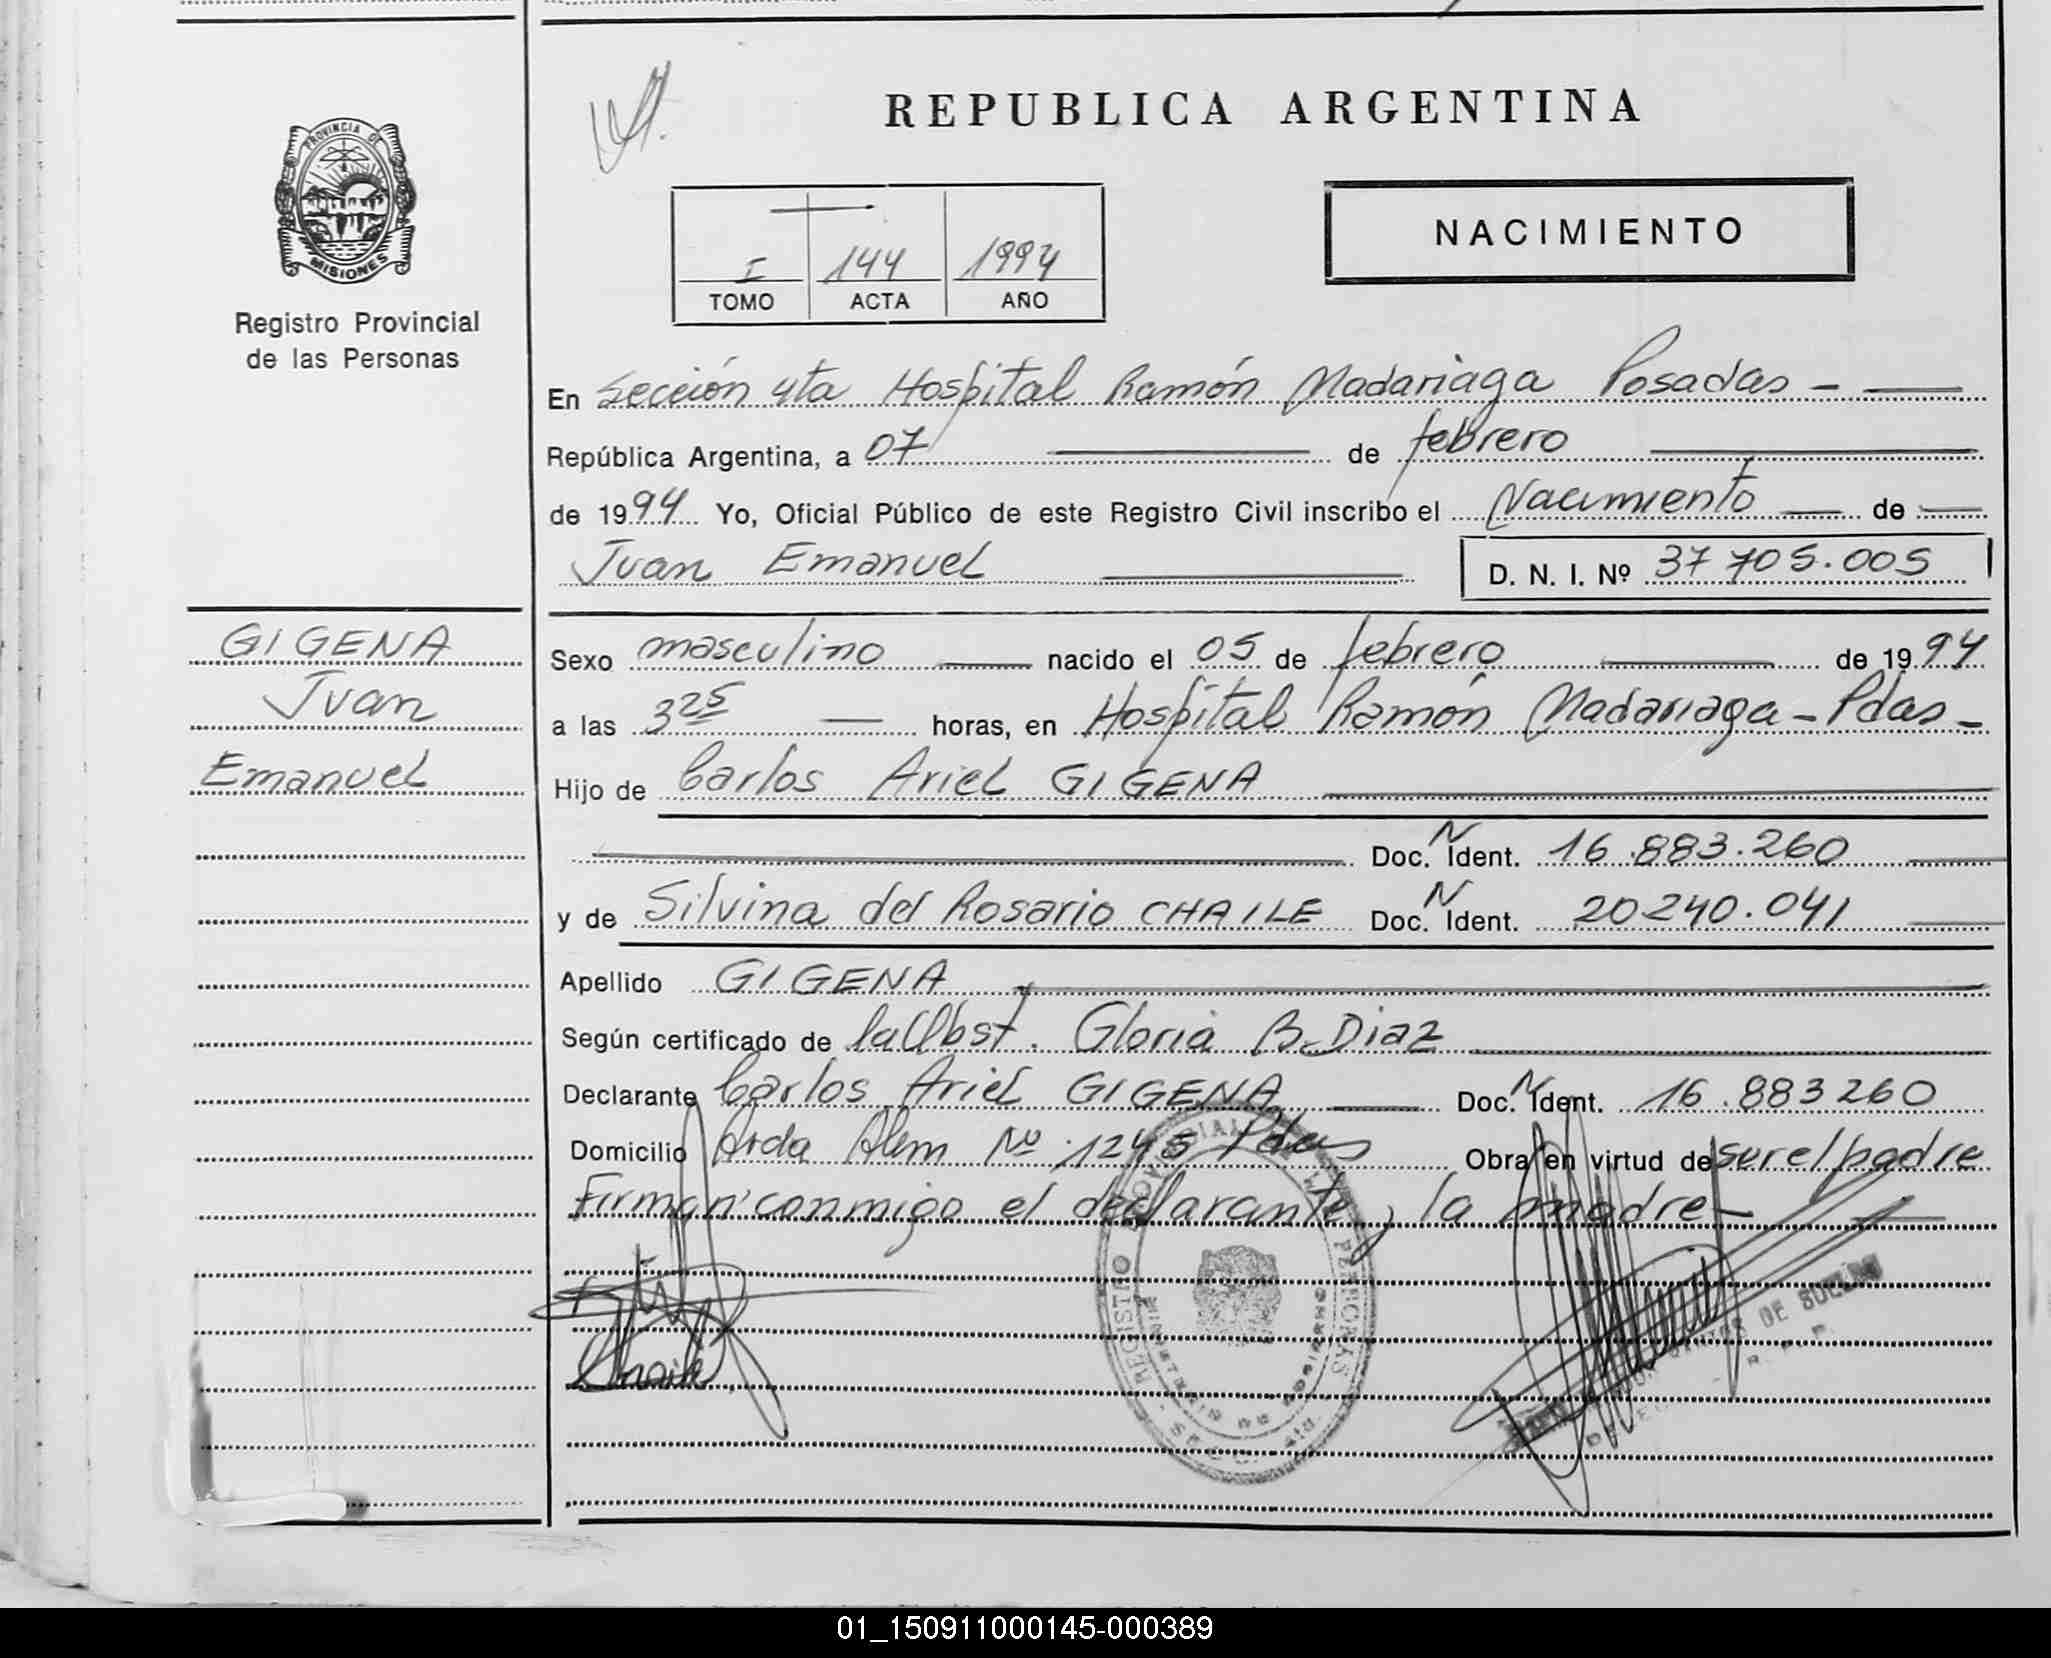 REPUBLICA ARGENTINA
PROVINCIA DE MISIONES
Registro Provincial
de las Personas
NACIMIENTO
I 144 1994
TOMO ACTA AÑO
En Sección 4ta Hospital Ramón Madariaga Posadas -
República Argentina, a 07 de febrero
de 1994 Yo, Oficial Público de este Registro Civil inscribo el Nacimiento de
Juan Emanuel D. N. I. Nº 37 705.005
GIGENA
Juan
Emanuel
Sexo masculino nacido el 05 de febrero de 1994
a las 3 25 horas, en Hospital Ramón Madariaga - Pdas -
Hijo de Carlos Ariel GIGENA
Doc. N Ident. 16.883.260
y de Silvina del Rosario CHAILE Doc. N Ident. 20240.041
Apellido GIGENA
Según certificado de la Obst. Gloria B. Diaz
Declarante Carlos Ariel GIGENA Doc. N Ident. 16.883260
Domicilio Avda Alem Nº 1245 Pdas Obra en virtud de ser el padre
Firman conmigo el declarante y la madre -
REGISTRO PROVINCIAL PERSONAS
MINISTERIO DE GOBIERNO
DE
01_150911000145-000389